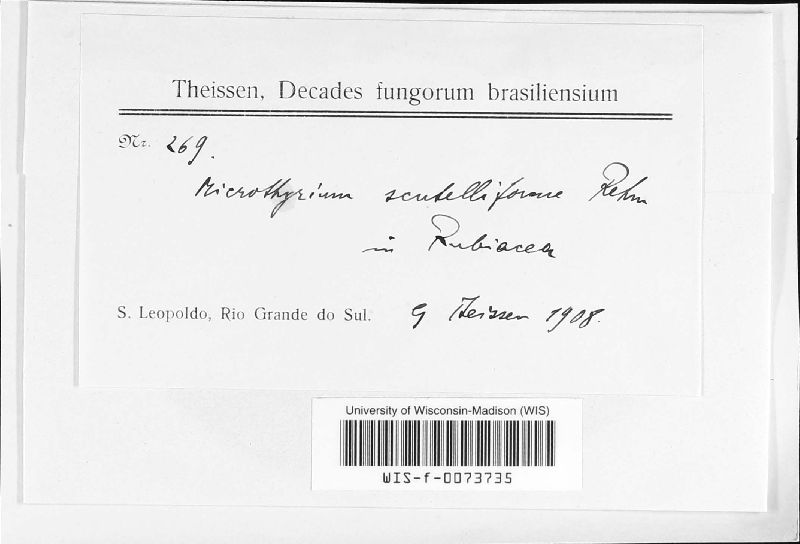 Theissen, Decades fungorum brasiliensium
Nr. 269.
Microthyrium scutelliforme Rehm
in Rubiacea
S. Leopoldo, Rio Grande do Sul. G Theissen 1908.
University of Wisconsin-Madison (WIS)
WIS-f-0073735